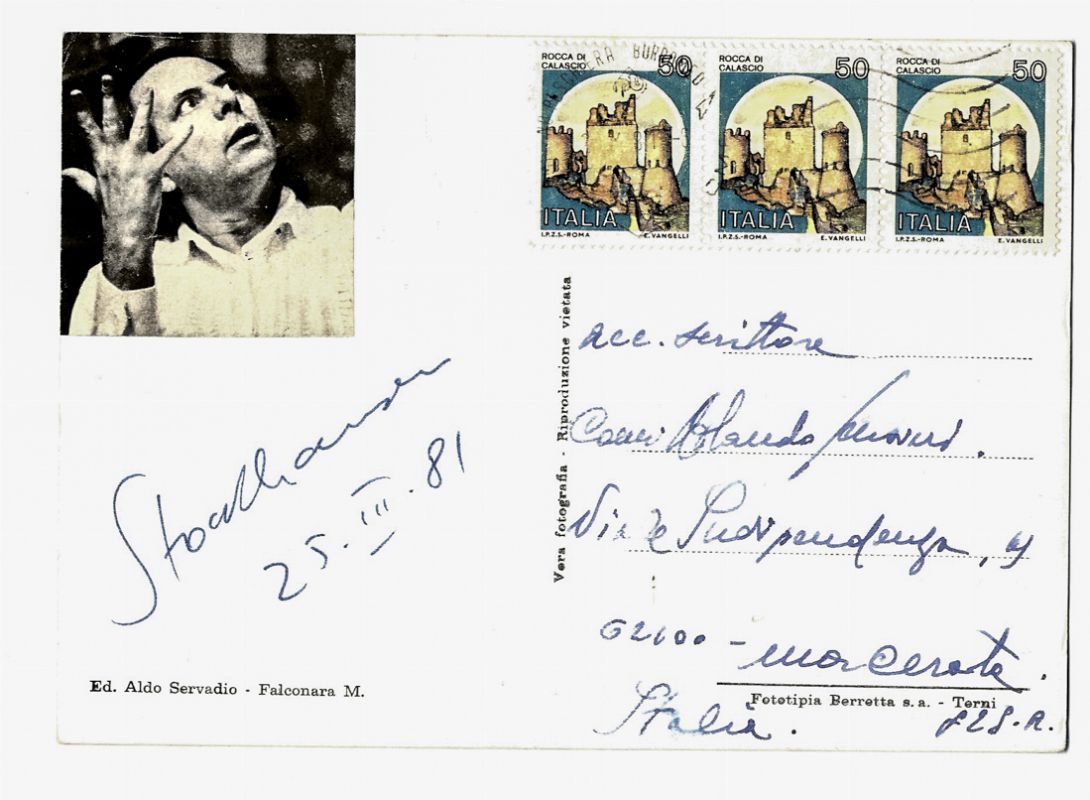 ROCCA DI
CALASCIO
50
ITALIA
I.P.Z.S.-ROMA E. VANGELLI
ROCCA DI
CALASCIO
50
ITALIA
I.P.Z.S.-ROMA E. VANGELLI
ROCCA DI
CALASCIO
50
ITALIA
I.P.Z.S.-ROMA E. VANGELLI
Stockhausen
25. III. 81
Ed. Aldo Servadio - Falconara M.
Vera fotografia - Riproduzione vietata
acc. scrittore
Orlando
Viale Indipendenza,
62100 - Macerata.
Italia.
Fototipia Berretta s.a. - Terni